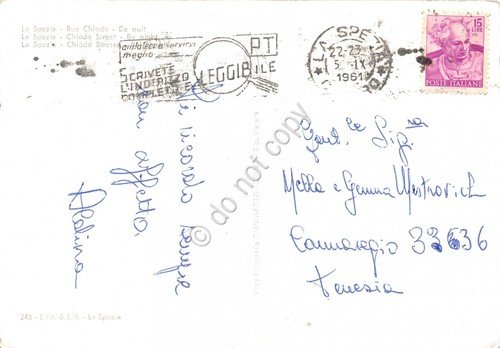 La Spezia - Rue Chiodo - De nuit
La Spezia - Chiodo Street - By night
La Spezia - Chiodo Strasse
aiutateci a servirvi
meglio
SCRIVETE
L'INDIRIZZO
COMPLETO E
LEGGIBILE
PT
LA SPEZIA
22-23
5 IX
1961
15
LIRE
POSTE ITALIANE
Vi ricordo sempre
con affetto.
Aldina
Gent. le Sig. na
Mella e Gemma Westrovich
Cannaregio 33536
Venezia
246 - Ediz. D.S.N. - La Spezia
do not copy